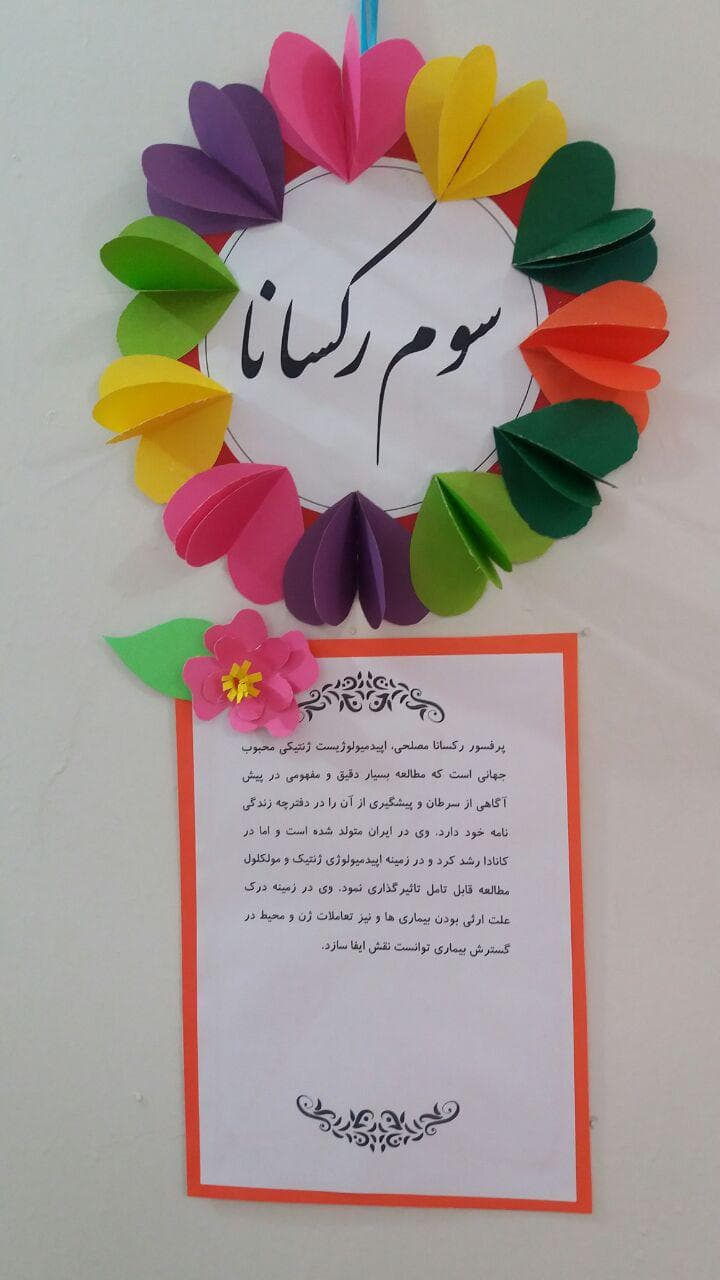 سوم رکسانا
پرفسور رکسانا مصلحی، اپیدمیولوژیست ژنتیکی محبوب
جهانی است که مطالعه بسیار دقیق و مفهومی در پیش
آگاهی از سرطان و پیشگیری از آن را در دفترچه زندگی
نامه خود دارد. وی در ایران متولد شده است و اما در
کانادا رشد کرد و در زمینه اپیدمیولوژی ژنتیک و مولکلول
مطالعه قابل تامل تاثیرگذاری نمود. وی در زمینه درک
علت ارثی بودن بیماری ها و نیز تعاملات ژن و محیط در
گسترش بیماری توانست نقش ایفا سازد.